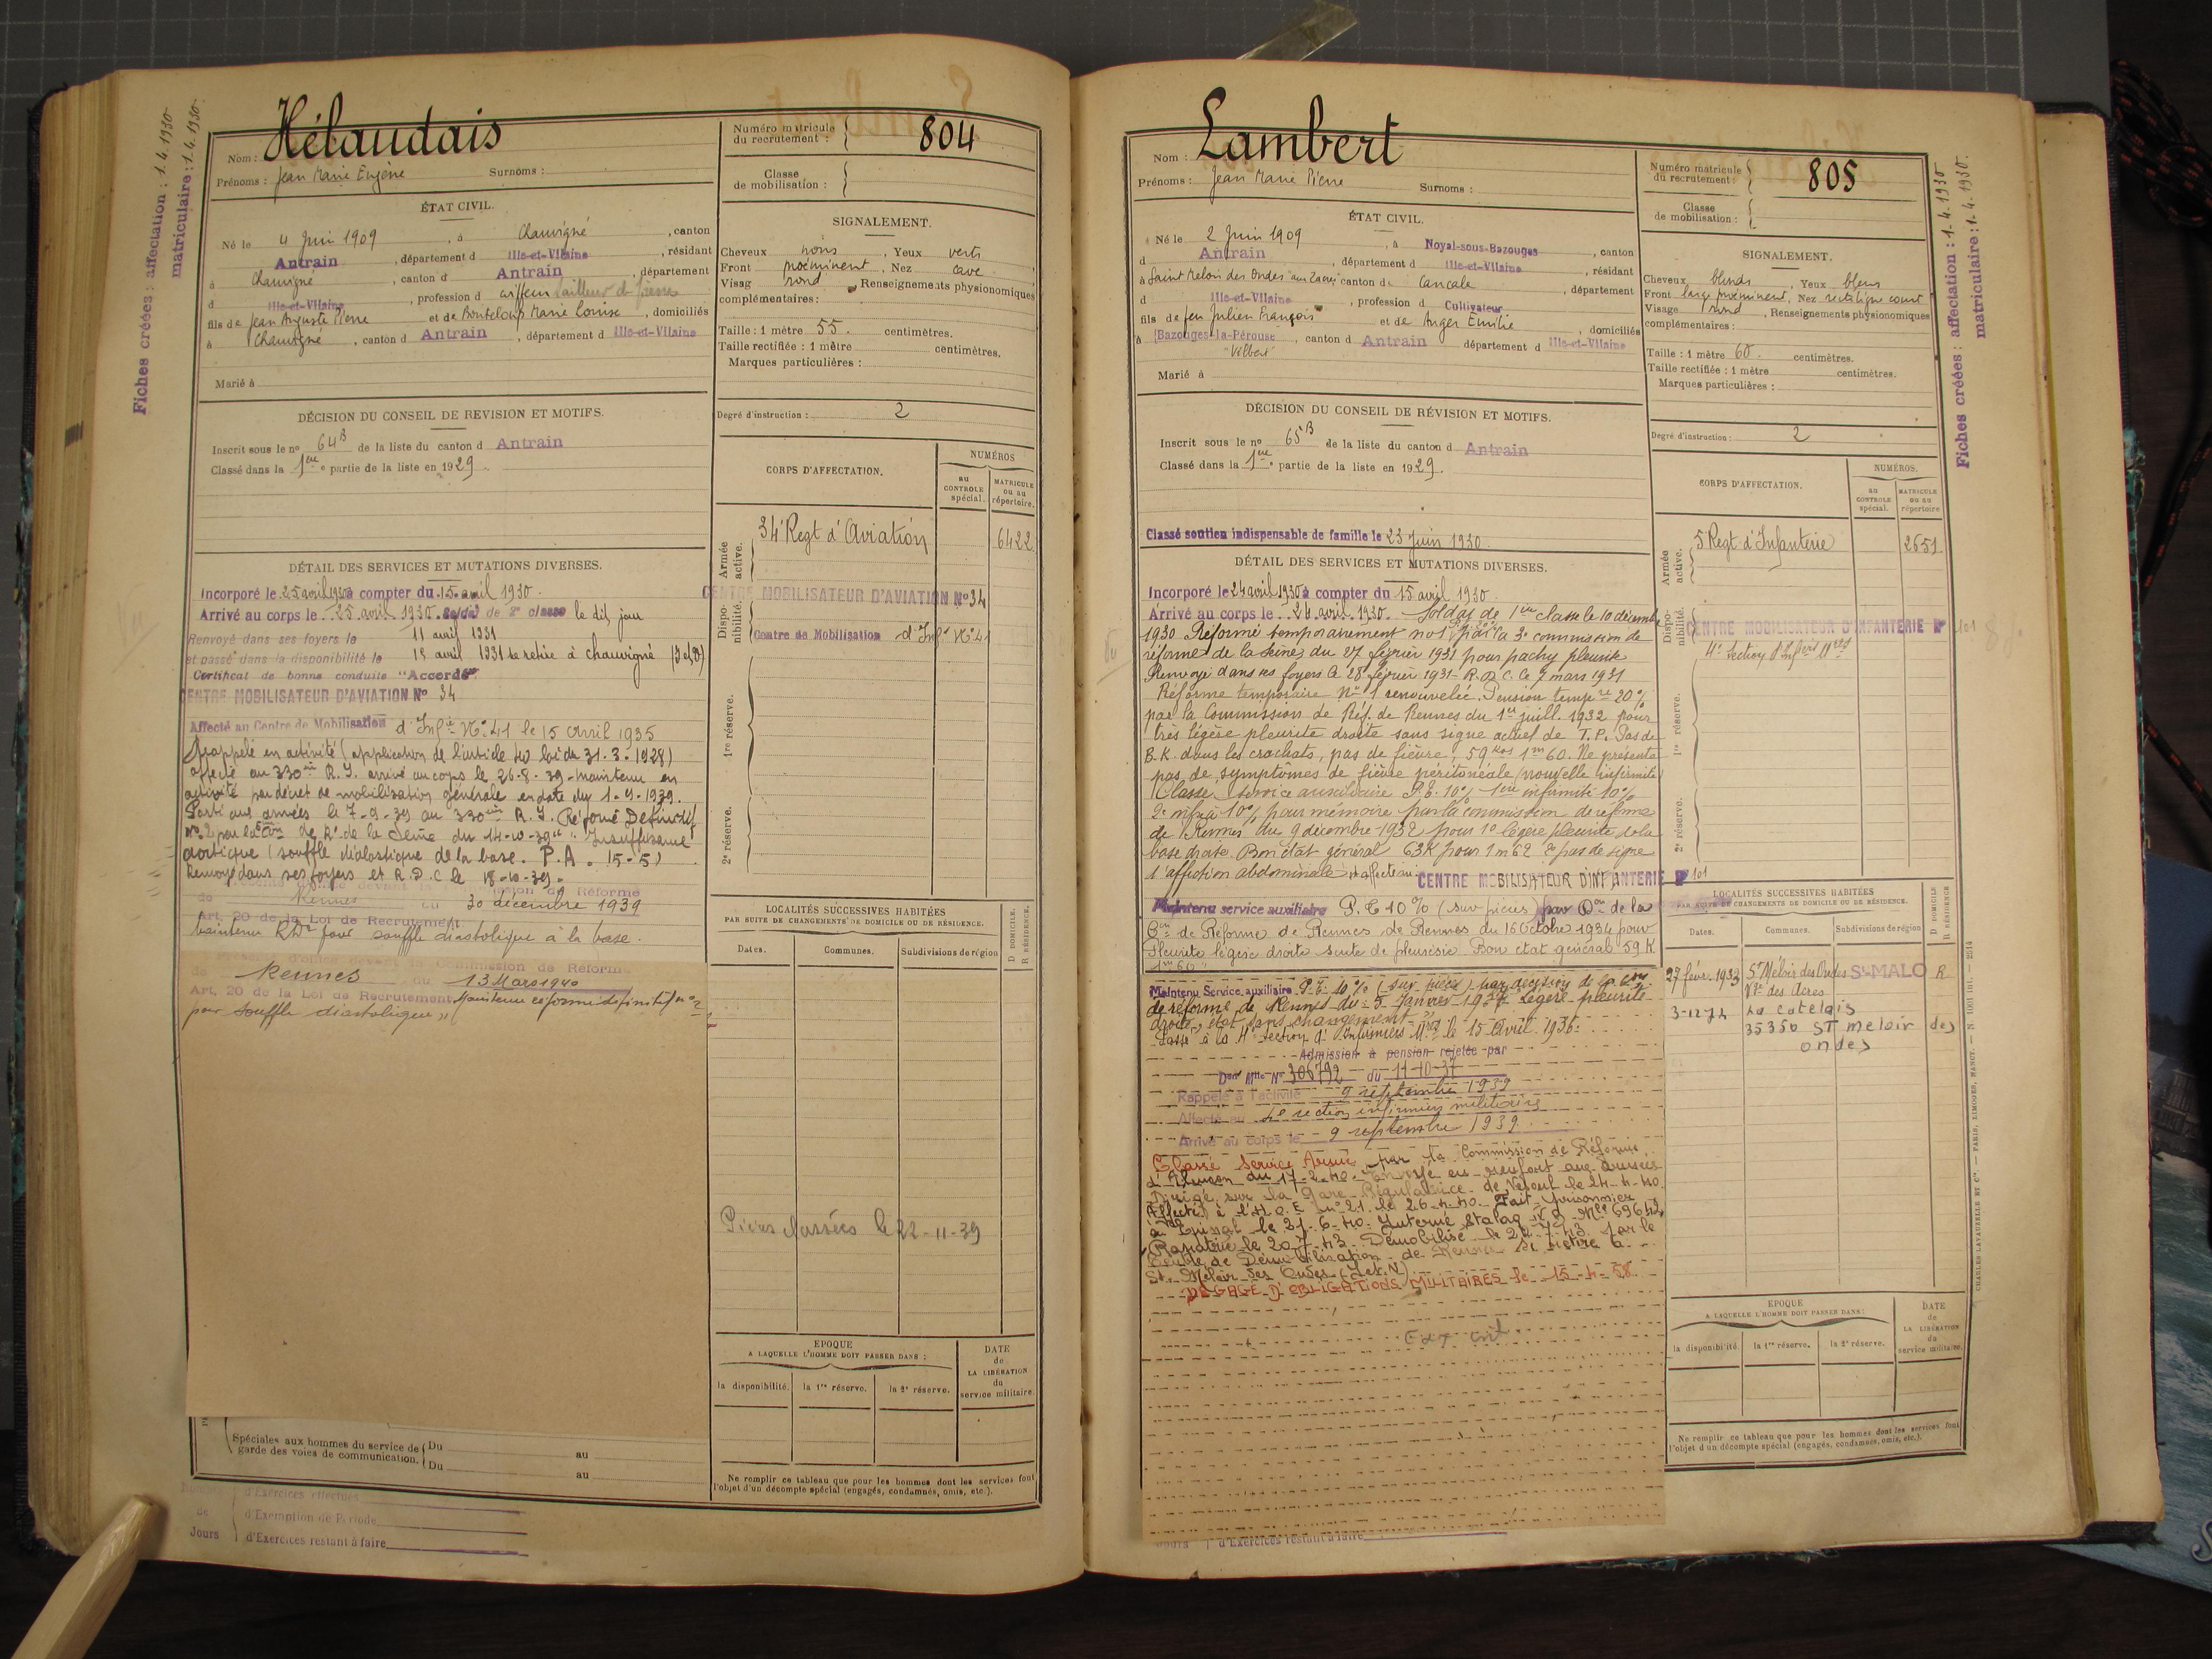 Fiches créées : affectation : 1.4.1930
matriculaire : 1.4.1930
Nom : Hélaudais
Prénoms : Jean Marie Eugène Surnoms :
ÉTAT CIVIL.
Né le 4 Juin 1909, à Chauvigné, canton
Antrain, département d Ille-et-Vilaine, résidant
à Chauvigné, canton d Antrain, département
d Ille-et-Vilaine, profession d coiffeur tailleur de pierres
fils de Jean Auguste Pierre et de Bouteloup Marie Louise, domiciliés
à Chauvigné, canton d Antrain, département d Ille-et-Vilaine
Marié à
DÉCISION DU CONSEIL DE REVISION ET MOTIFS.
Inscrit sous le no 64B de la liste du canton d Antrain
Classé dans la 1ère partie de la liste en 1929.
DÉTAIL DES SERVICES ET MUTATIONS DIVERSES.
Incorporé le 25 avril 1930 à compter du 15 avril 1930.
Arrivé au corps le 25 avril 1930. soldat de 2e classe le dit jour
Renvoyé dans ses foyers le 11 avril 1931
et passé dans la disponibilité le 15 avril 1931 se retire à Chauvigné
Certificat de bonne conduite "Accordé"
CENTRE MOBILISATEUR D'AVIATION No 34
Affecté au Centre de Mobilisation d'Infie No 41 le 15 avril 1935
Rappelé en activité (application de l'article 40 loi du 31.3.1928)
affecté au 330ème R.I. arrivé au corps le 26-8-39 - maintenu en
activité par décret de mobilisation générale en date du 1-9-1939.
Parti aux armées le 7-9-39 au 330ème R.I. Réformé Définitif
no 2 par la Con de Re de la Seine du 14-10-39 "Insuffisance
aortique (souffle diastolique de la base. P.A. 15-5)
Renvoyé dans ses foyers et R.D.C le 18-10-39.
Présenté d'office devant la Commission de Réforme
de Rennes du 30 décembre 1939
Art. 20 de la Loi de Recrutement
Maintenu RD2 pour souffle diastolique à la base.
Présenté d'office devant la Commission de Réforme
de Rennes du 13 Mars 1940
Art. 20 de la Loi de Recrutement Maintenu réformé définitif no 2
pour souffle diastolique "
Spéciales aux hommes du service de garde des voies de communication. Du au
Du au
Nombre d'Exercices effectués
de d'Exemption de Période
Jours d'Exercices restant à faire
Numéro matricule du recrutement : 804
Classe de mobilisation :
SIGNALEMENT.
Cheveux noirs, Yeux verts
Front proéminent, Nez cave
Visage rond Renseignements physionomiques
complémentaires :
Taille : 1 mètre 55 centimètres.
Taille rectifiée : 1 mètre centimètres.
Marques particulières :
Degré d'instruction : 2
CORPS D'AFFECTATION.
NUMÉROS
au CONTROLE spécial.
MATRICULE ou au répertoire.
Armée active.
34e Regt d'Aviation 6422
Disponibilité.
CENTRE MOBILISATEUR D'AVIATION No 34
Centre de Mobilisation d'Infie No 41
1re réserve.
2e réserve.
LOCALITÉS SUCCESSIVES HABITÉES
PAR SUITE DE CHANGEMENTS DE DOMICILE OU DE RÉSIDENCE.
Dates. Communes. Subdivisions de région D DOMICILE. R RÉSIDENCE.
Pièces classées le 22-11-39
EPOQUE
A LAQUELLE L'HOMME DOIT PASSER DANS :
DATE de LA LIBÉRATION du service militaire.
la disponibilité. la 1re réserve. la 2e réserve.
Ne remplir ce tableau que pour les hommes dont les services font
l'objet d'un décompte spécial (engagés, condamnés, omis, etc.).
Nom : Lambert
Prénoms : Jean Marie Pierre Surnoms :
ÉTAT CIVIL.
Né le 2 Juin 1909, à Noyal-sous-Bazouges, canton
d Antrain, département d Ille-et-Vilaine, résidant
à Saint Meloir des Ondes canton de Cancale, département
d Ille-et-Vilaine, profession d Cultivateur
fils de feu Julien François et de Anger Emilie, domiciliés
à Bazouges-la-Pérouse, canton d Antrain département d Ille-et-Vilaine
"Vilbert"
Marié à
DÉCISION DU CONSEIL DE RÉVISION ET MOTIFS.
Inscrit sous le no 65B de la liste du canton d Antrain
Classé dans la 1ère partie de la liste en 1929.
Classé soutien indispensable de famille le 23 Juin 1930.
DÉTAIL DES SERVICES ET MUTATIONS DIVERSES.
Incorporé le 24 avril 1930 à compter du 15 avril 1930.
Arrivé au corps le 24 avril 1930. Soldat de 1ère classe le 10 décembre
1930 Réformé temporairement no 1 par la 3e commission de
réforme de la Seine du 27 février 1931 pour pachy pleurite
Renvoyé dans ses foyers le 28 février 1931 - R.D.C. le 7 mars 1931
Réforme temporaire No 1 renouvelée. Pension tempre 20%
par la Commission de Réf. de Rennes du 1er juill. 1932 pour
très légère pleurite droite sans signe actuel de T.P. Pas de
B.K. dans les crachats, pas de fièvre, 59 kos 1m60. Ne présente
pas de symptômes de fièvre péritonéale (nouvelle infirmité
Classé service auxiliaire P.T. 10% 1ère infirmité 10%
2e infié à 10% pour mémoire par la commission de réforme
de Rennes du 9 décembre 1932 pour 1o légère pleurite de la
base droite. Bon état général 63K pour 1m62 2o pas de signe
d'affection abdominale. et affecté au CENTRE MOBILISATEUR D'INFANTERIE No 101
Maintenu service auxiliaire P.T. 10% (sur pièces) par Don de la
Con de Réforme de Rennes du 16 Octobre 1934 pour
Pleurite légère droite suite de pleurésie Bon état général 59 K
1m60
Maintenu Service auxiliaire P.T. 10% (sur pièces) par décision de la Con
de réforme de Rennes du 5 Janvier légère pleurite
droite, état sans changement.
Passé à la 4e Section d'Infirmiers Mres le 15 Avril 1936.
Admission à pension rejetée par
Don Mlle No 306792 du 11-10-37
Rappelé à l'activité 9 septembre 1939
Affecté au 4e section infirmiers militaires
Arrivé au corps le 9 septembre 1939
Classé Service Armé par la Commission de Réforme
d'Alençon du 17-2-40. Envoyé en renfort aux Armées
Dirigé sur la Gare Régulatrice de Vesoul le 24-4-40
Affecté à l'H.O.E. no 21 le 26-4-40. Fait prisonnier
à Epinal le 21-6-40. Interné Stalag
Rapatrié le 20-7-43. Démobilisé le 22-7-43 par le
Centre de Démobilisation de Rennes se retire à
St Méloir des Ondes (I.et.V)
DEGAGE D'OBLIGATIONS MILITAIRES le 15-4-58
Jours d'Exercices restant à faire
Numéro matricule du recrutement : 805
Classe de mobilisation :
SIGNALEMENT.
Cheveux blonds, Yeux bleus
Front large proéminent, Nez rectiligne court
Visage rond, Renseignements physionomiques
complémentaires :
Taille : 1 mètre 60 centimètres.
Taille rectifiée : 1 mètre centimètres.
Marques particulières :
Degré d'instruction : 2
CORPS D'AFFECTATION.
NUMÉROS.
au CONTROLE spécial.
MATRICULE ou au répertoire
Armée active.
5e Regt d'Infanterie 2651
Disponibilité.
CENTRE MOBILISATEUR D'INFANTERIE No 101
4e Section d'Infiers Mres
1re réserve.
2e réserve.
LOCALITÉS SUCCESSIVES HABITÉES
PAR SUITE DE CHANGEMENTS DE DOMICILE OU DE RÉSIDENCE.
Dates. Communes. Subdivisions de région D DOMICILE R RÉSIDENCE
27 févr. 1933 St Méloir des Ondes St-MALO R
3-12-74 La Cotelais
35350 ST meloir des
ondes
EPOQUE
A LAQUELLE L'HOMME DOIT PASSER DANS :
DATE de LA LIBÉRATION du service militaire.
la disponibilité. la 1re réserve. la 2e réserve.
Ne remplir ce tableau que pour les hommes dont les services font
l'objet d'un décompte spécial (engagés, condamnés, omis, etc.).
Fiches créées : affectation : 1-4-1930
matriculaire : 1-4-1930.
CHARLES-LAVAUZELLE ET Cie. — PARIS, LIMOGES, NANCY.